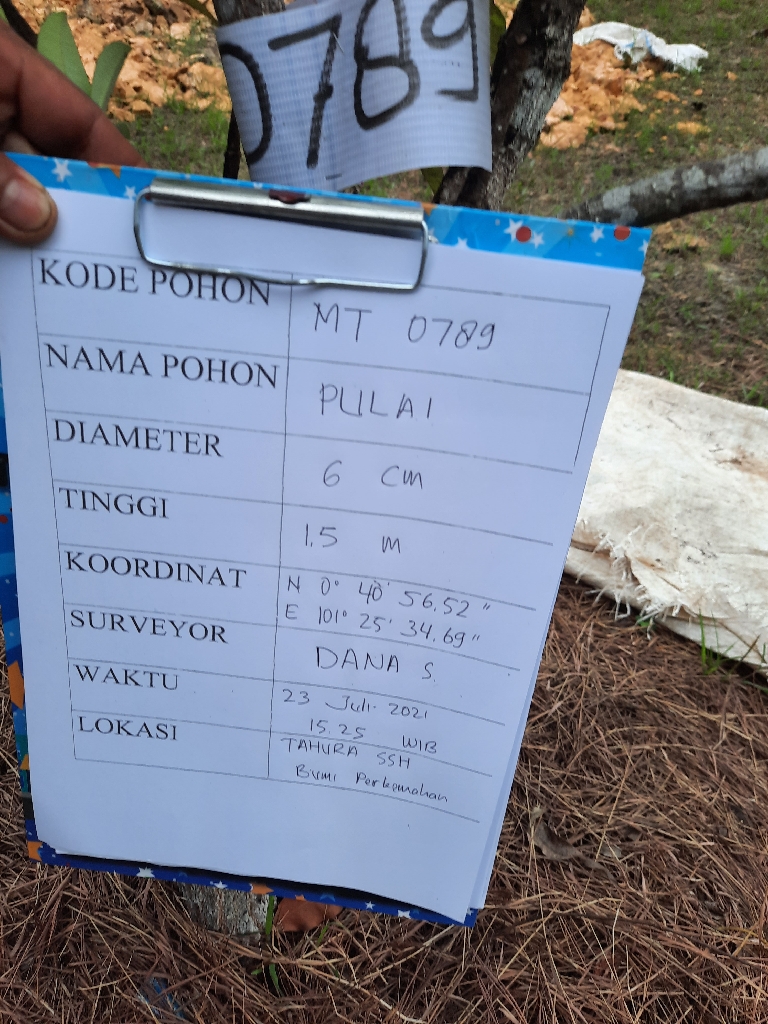 0789
KODE POHON MT 0789
NAMA POHON PULAI
DIAMETER 6 cm
TINGGI 1.5 m
KOORDINAT N 0° 40' 56.52"
E 101° 25' 34.69"
SURVEYOR DANA S.
WAKTU 23 Juli 2021
15.25 WIB
LOKASI TAHURA SSH
Bumi Perkemahan